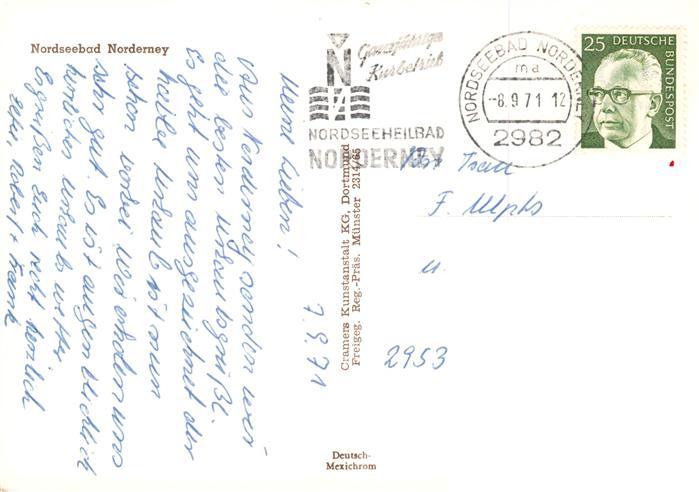 Nordseebad Norderney
Meine Lieben!
7.9.71
Aus Norderney senden wir
die besten Urlaubsgrüße.
Es geht uns ausgezeichnet der
halbe Urlaub ist nun
schon vorbei. Wir erholen uns
sehr gut. Es ist augenblicklich
Urlaubswetter
Es grüßen Euch recht herzlich
Robert + Frank
Ganzjähriger
Kurbetrieb
N
NORDSEEHEILBAD
NORDERNEY
NORDSEEBAD NORDERNEY
ma
-8.9.71 12
2982
25 DEUTSCHE
BUNDESPOST
F.
u.
2953
Cramers Kunstanstalt KG. Dortmund
Freigeg. Reg.-Präs. Münster 2314/65
Deutsch-
Mexichrom